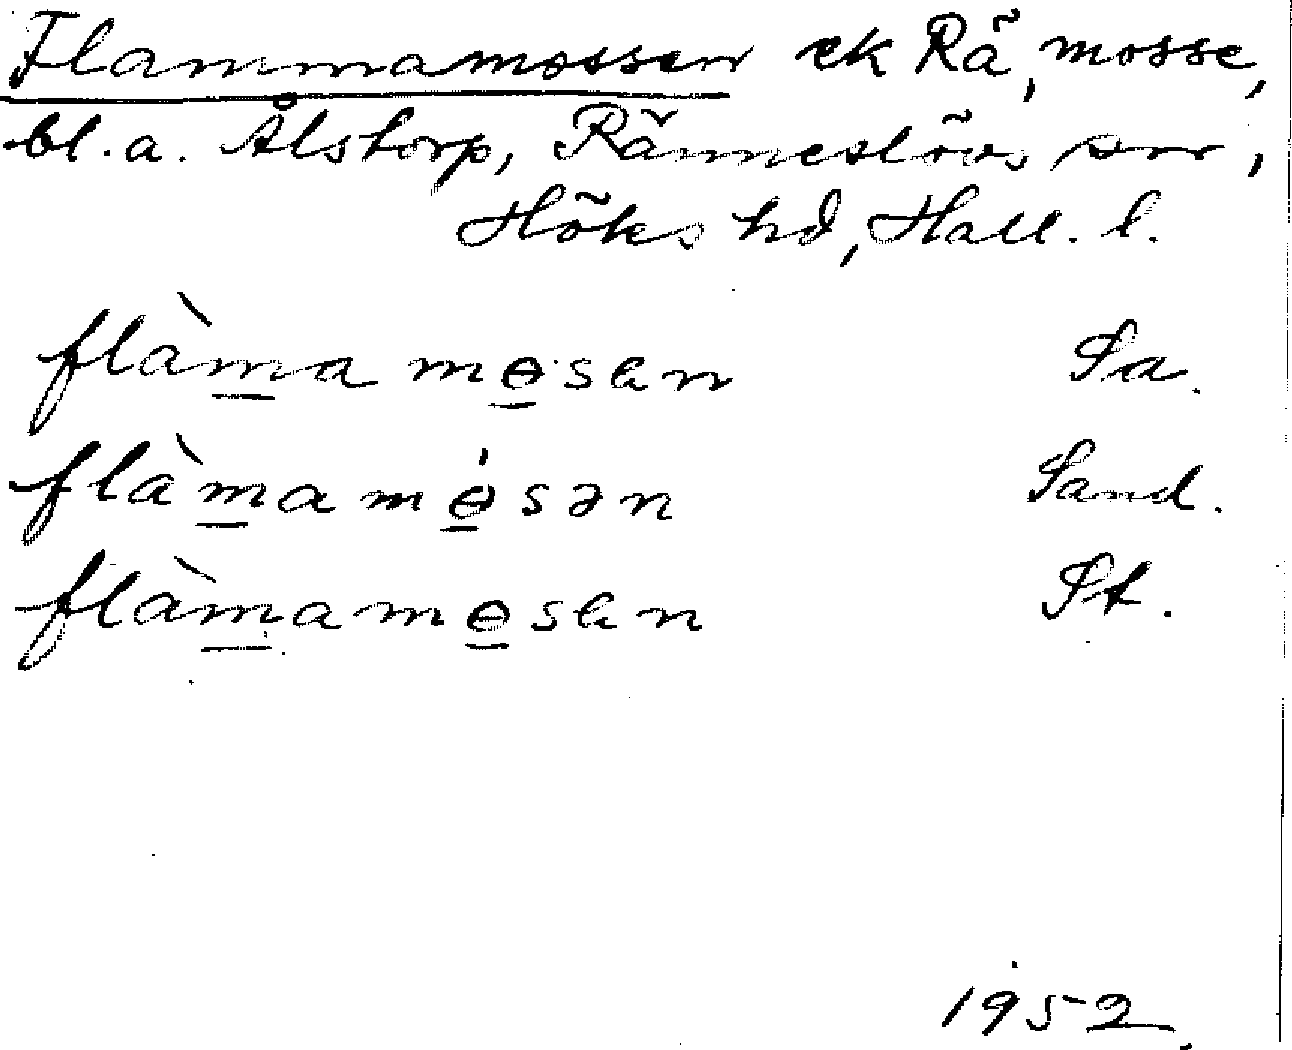 Flammamossen ek Rä, mosse,
bl.a. Ålstorp, Ränneslövs sn,
Höks hd, Hall. l.
flàmamɵsen Sa.
flàmamɵ́sən Sand.
flàmamɵsen St.
1952.